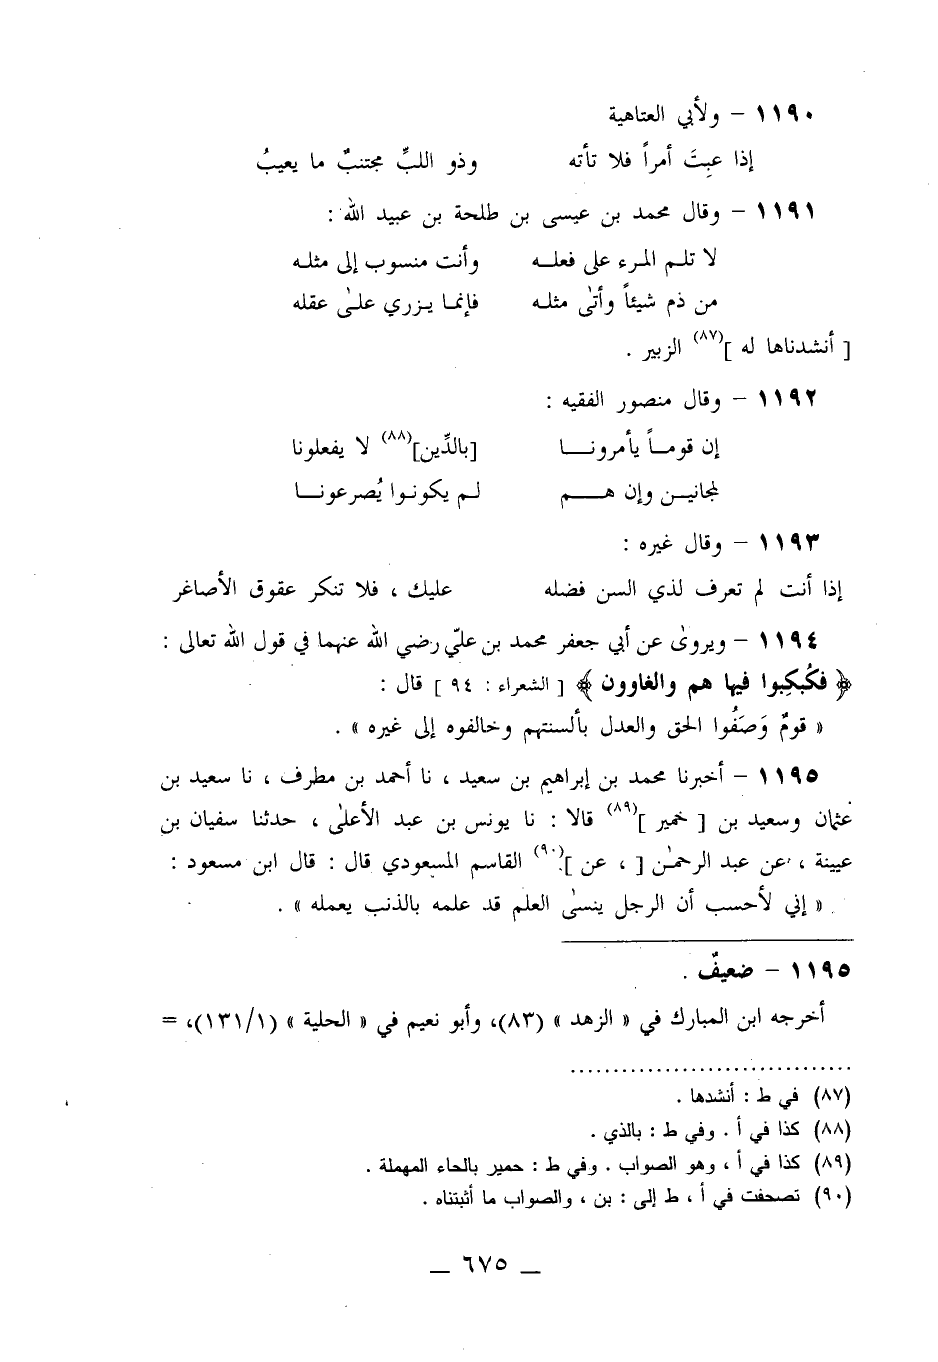 ١١٩٠ – ولأبي العتاهية
إذا عِبتَ أمراً فلا تأته وذو اللبِّ مجتنبٌ ما يعيبُ
١١٩١ – وقال محمد بن عيسى بن طلحة بن عبيد الله :
لا تلـم المرء على فعلـه وأنت منسوب إلى مثلـه
من ذم شيئاً وأتىٰ مثلـه فإنمـا يـزري علـىٰ عقله
[ أنشدناها له ](٨٧) الزبير .
١١٩٢ – وقال منصور الفقيه :
إن قومـاً يأمرونـــا [بالدِّين](٨٨) لا يفعلونا
لمجانيـن وإن هـــم لـم يكونـوا يُصرعونـا
١١٩٣ – وقال غيره :
إذا أنت لم تعرف لذي السن فضله عليك ، فلا تنكر عقوق الأصاغر
١١٩٤ – ويروىٰ عن أبي جعفر محمد بن عليّ رضي الله عنهما في قول الله تعالى :
﴿ فكُبكِبوا فيها هم والغاوون ﴾ [ الشعراء : ٩٤ ] قال :
« قومٌ وَصَفُوا الحق والعدل بألسنتهم وخالفوه إلى غيره » .
١١٩٥ – أخبرنا محمد بن إبراهيم بن سعيد ، نا أحمد بن مطرف ، نا سعيد بن
عثمان وسعيد بن [ خمير ](٨٩) قالا : نا يونس بن عبد الأعلىٰ ، حدثنا سفيان بن
عيينة ، عن عبد الرحمٰن [ ، عن ](٩٠) القاسم المسعودي قال : قال ابن مسعود :
« إني لأحسب أن الرجل ينسىٰ العلم قد علمه بالذنب يعمله » .
١١٩٥ – ضعيفٌ .
أخرجه ابن المبارك في « الزهد » (٨٣)، وأبو نعيم في « الحلية » (١٣١/١)، =
(٨٧) في ط : أنشدها .
(٨٨) كذا في أ . وفي ط : بالذي .
(٨٩) كذا في أ ، وهو الصواب . وفي ط : حمير بالحاء المهملة .
(٩٠) تصحفت في أ ، ط إلى : بن ، والصواب ما أثبتناه .
— ٦٧٥ —